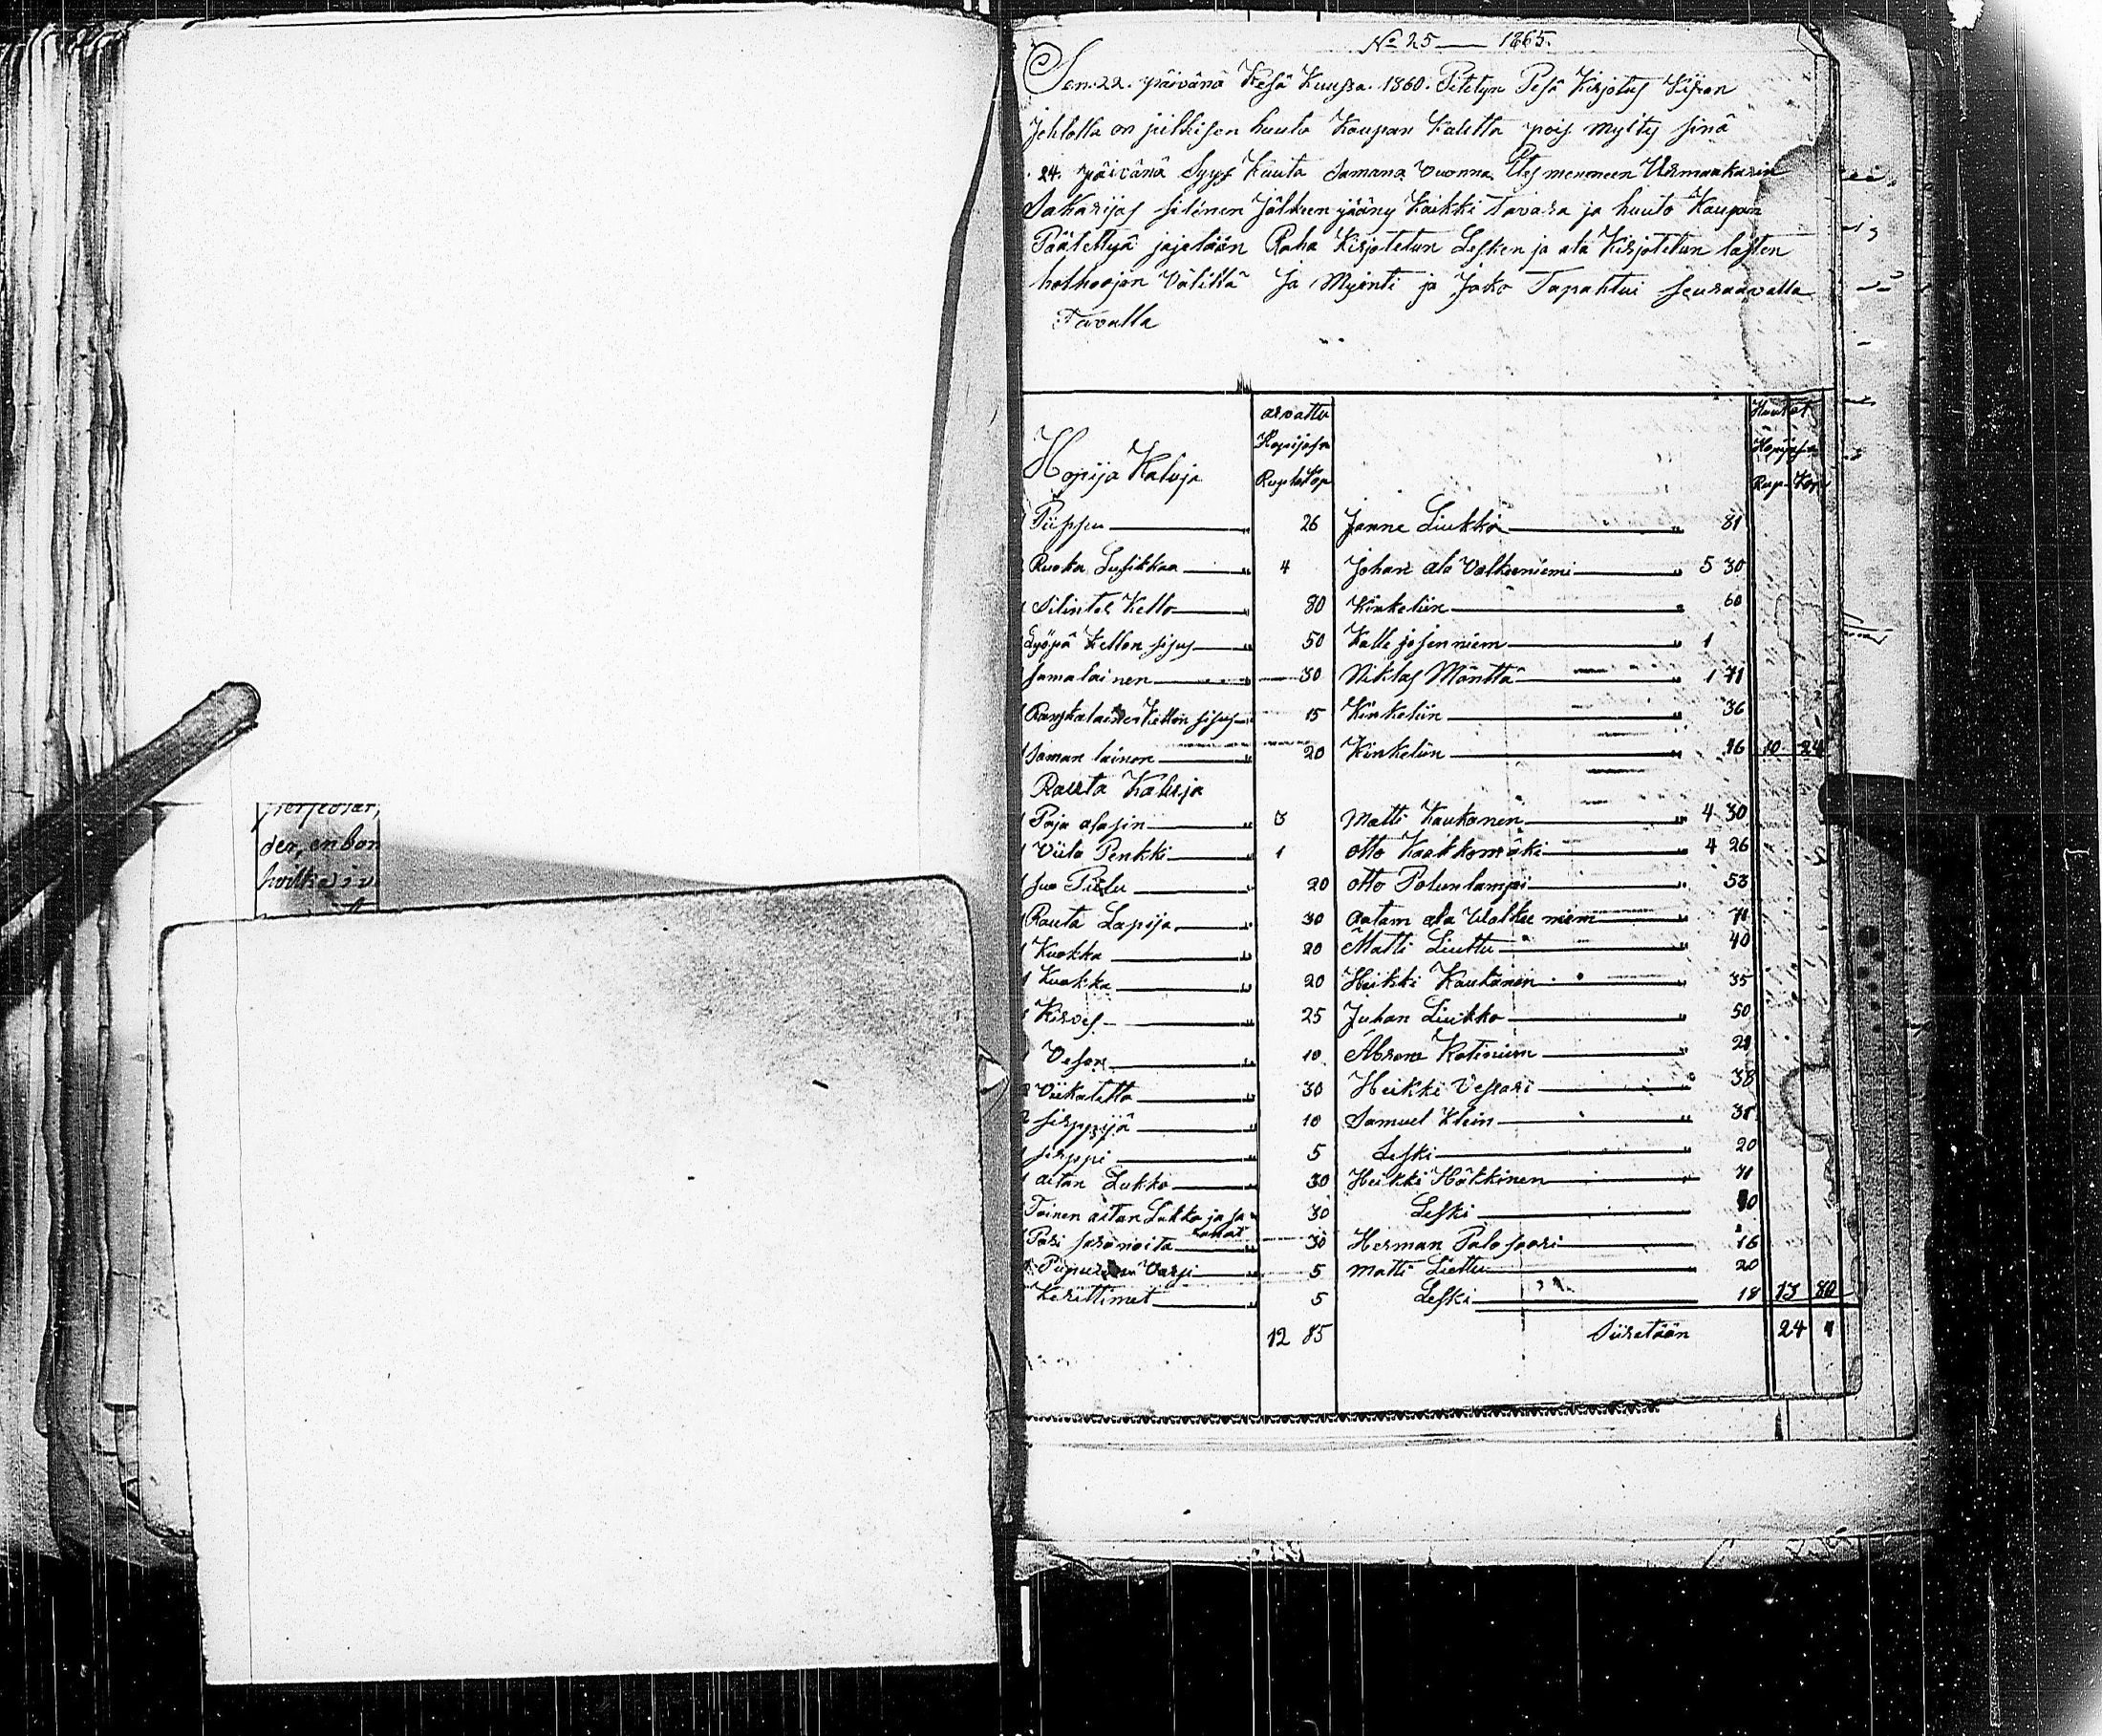 der, en bon
hvilka i v
No 25 — 1865.
Sen. 22. päivänä Kesä Kuussa. 1860. Pitetyn Pesä Kirjotus Kirjon
Johtolla on julkisen huuto Kaupan Kautta pois myity sinä
24. päivänä Syys Kuuta Samana vuonna Etes menneen Urmaakarin
Sakarijas silénin jälkeen jääny Kaikki Tavara ja huuto Kaupan
Päätettyä jajetaan Raha Kirjotetun Lesken ja ala Kirjotetun lasten
holhoojan Välillä Ja Myönti ja Jako Tapahtui seuraavalla
Tavalla
Hopija Kaluja arvattu Hopijasa Rupla Kop Huudot Hopijasa Rup Kop
1 Piippu 26 Janne Liukko 81
Ruoka Lusikkaa 4 Johan ala Valkeeniemi 5 30
1 Silintel Kello 80 Kinkeliin 60
Lyöpä Kellon sisus 50 Kalle josenniem 1
samalainen 30 Niklas Mänttä 1 71
Ranskalainen Kellon sisus 15 Kinkeliin 36
1 Saman lainen 20 Kinkeliin 16 10 24
Rauta Kaluja
1 Paja alasin 3 Matti Kaukonen 4 30
1 Viila Penkki 1 Otto Kaakkomäki 4 26
1 suo Piilu 20 Otto Polunlampi 53
1 Rauta Lapija 30 Aatam ala Walkee niem 71
1 Kuokka 20 Matti Liuttu 40
1 Kuokka 20 Heikki Kautonen 35
1 Kirves 25 Juhan Liukko 50
1 Veson 10 Abram Kotiniem 21
2 Viikatetta 30 Heikki Vessari 38
2 sirppijä 10 Samuel Klein 31
1 sirppi 5 Leski 20
1 aitan Lukko 30 Heikki Häkkinen 71
1 Toinen aitan Lukko ja sa 30 Leski 80
Pari saranoita 30 Herman Palosaari 16
Varsi 5 Matti Liuttu 20
Kerittimet 5 Leski 18 13 80
12 85 Siiretään 24 4